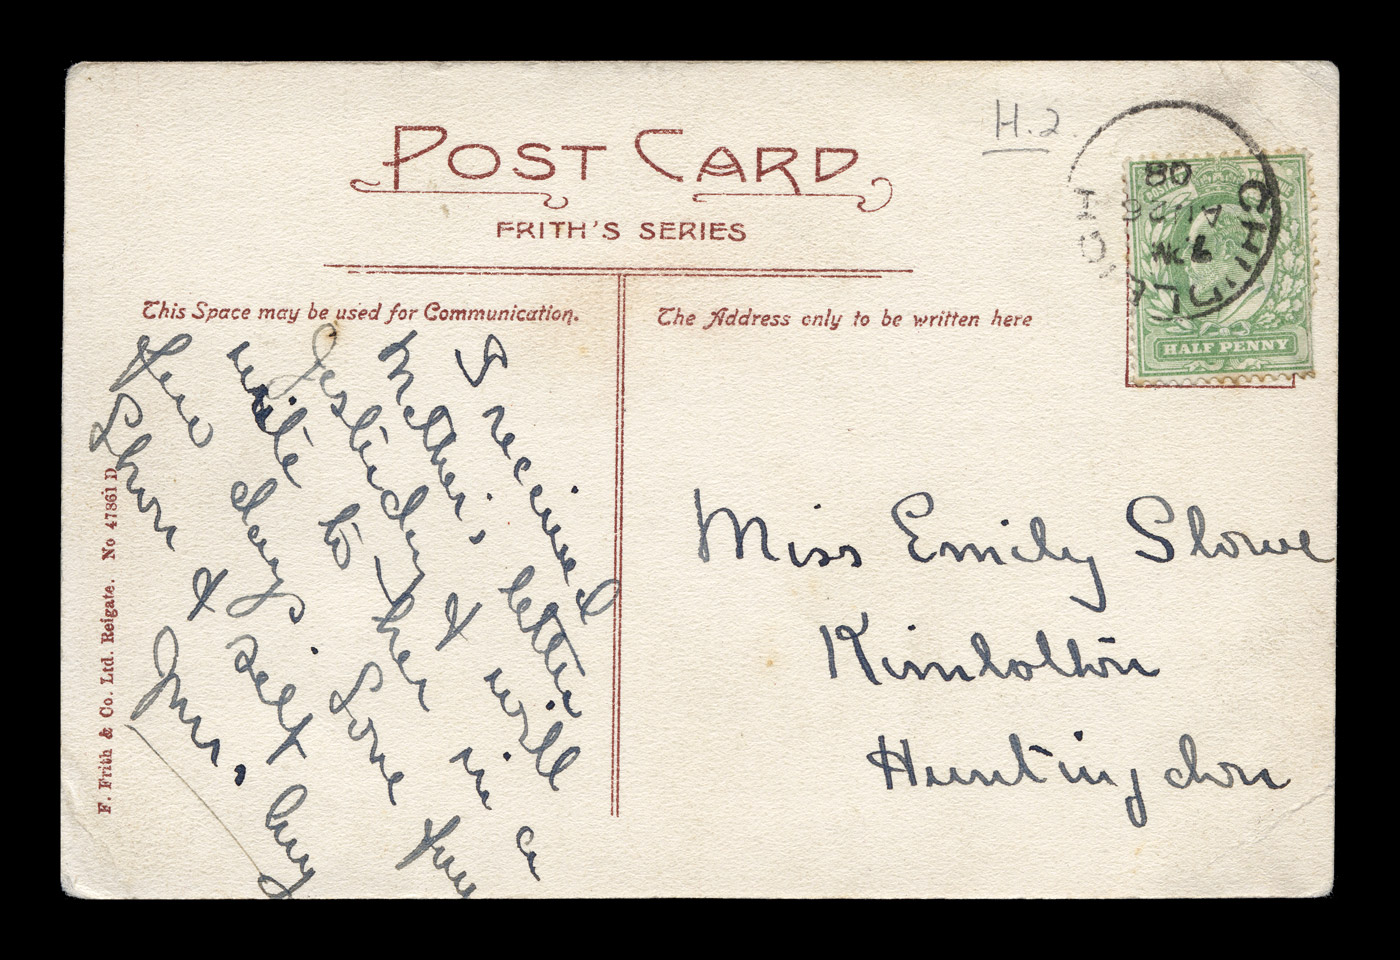 POST CARD
FRITH'S SERIES
H.2.
CHUDLEIGH
08
HALF PENNY
This Space may be used for Communication.
The Address only to be written here
I received
Mother's letter
Yesterdy & will
write to her in a
few days. Love from
& Self
Miss Emily Slowe
Kimbolton
Huntingdon
F. Frith & Co. Ltd. Reigate. No 47861 D